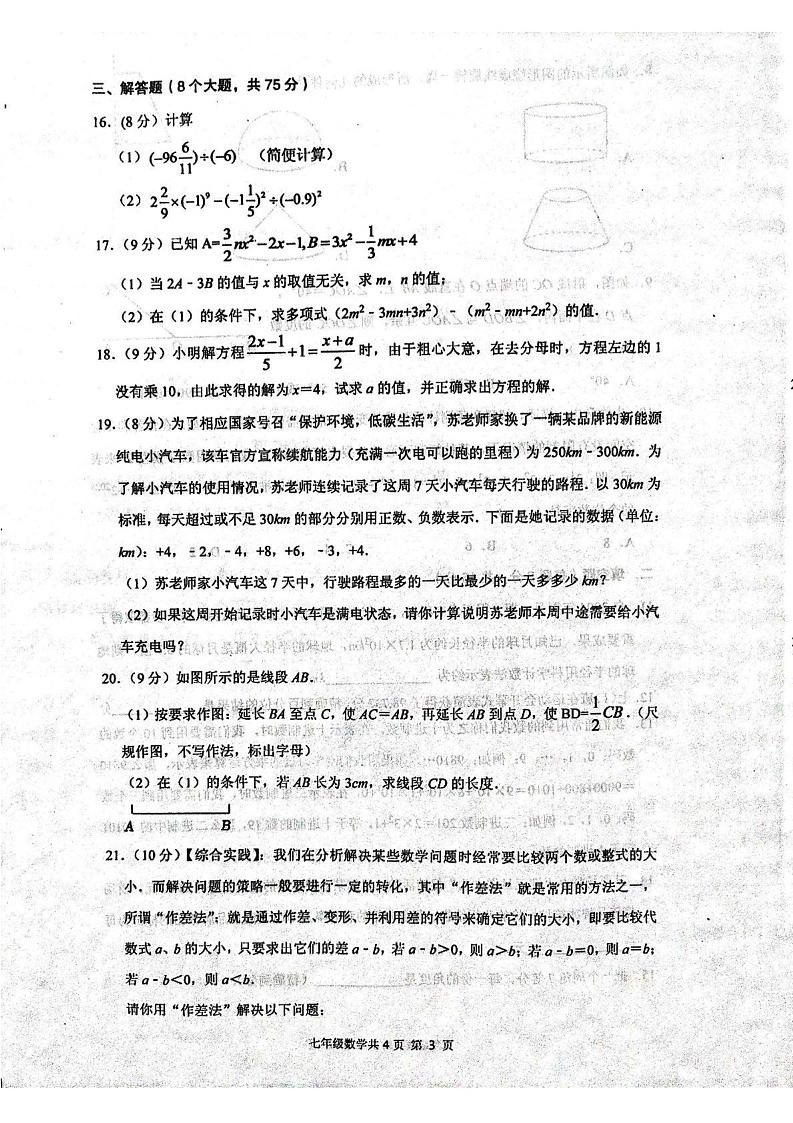 三、解答题(8个大题，共75分)
16．(8分)计算
(1) (−96 6/11)÷(−6) (简便计算)
(2) 2 2/9×(−1)⁹−(−1 1/5)²÷(−0.9)²
17．(9分)已知 A=3/2nx²−2x−1, B=3x²−1/3mx+4
(1)当2A﹣3B的值与x的取值无关，求m，n的值；
(2)在(1)的条件下，求多项式(2m²﹣3mn+3n²)﹣(m²﹣mn+2n²)的值．
18．(9分)小明解方程(2x−1)/5+1=(x+a)/2时，由于粗心大意，在去分母时，方程左边的1
没有乘10，由此求得的解为x＝4，试求a的值，并正确求出方程的解．
19．(8分)为了相应国家号召“保护环境，低碳生活”，苏老师家换了一辆某品牌的新能源
纯电小汽车，该车官方宣称续航能力(充满一次电可以跑的里程)为250km﹣300km．为
了解小汽车的使用情况，苏老师连续记录了这周7天小汽车每天行驶的路程．以30km为
标准，每天超过或不足30km的部分分别用正数、负数表示．下面是她记录的数据(单位：
km)：+4，﹣2，﹣4，+8，+6，﹣3，+4．
(1)苏老师家小汽车这7天中，行驶路程最多的一天比最少的一天多多少km？
(2)如果这周开始记录时小汽车是满电状态，请你计算说明苏老师本周中途需要给小汽
车充电吗？
20．(9分)如图所示的是线段AB．
(1)按要求作图：延长BA至点C，使AC＝AB，再延长AB到点D，使BD=1/2CB．(尺
规作图，不写作法，标出字母)
(2)在(1)的条件下，若AB长为3cm，求线段CD的长度．
A B
21．(10分)【综合实践】：我们在分析解决某些数学问题时经常要比较两个数或整式的大
小．而解决问题的策略一般要进行一定的转化，其中“作差法”就是常用的方法之一，
所谓“作差法”：就是通过作差、变形、并利用差的符号来确定它们的大小，即要比较代
数式a、b的大小，只要求出它们的差a﹣b，若a﹣b＞0，则a＞b；若a﹣b＝0，则a＝b；
若a﹣b＜0，则a＜b．
请你用“作差法”解决以下问题：
七年级数学共4页 第3页